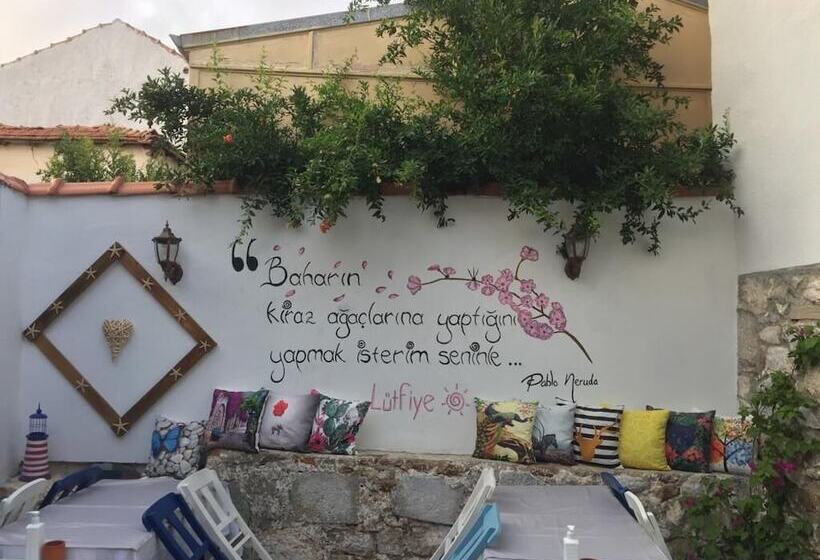 “Baharın
kiraz ağaçlarına yaptığını
yapmak isterim seninle...
Pablo Neruda
Lütfiye